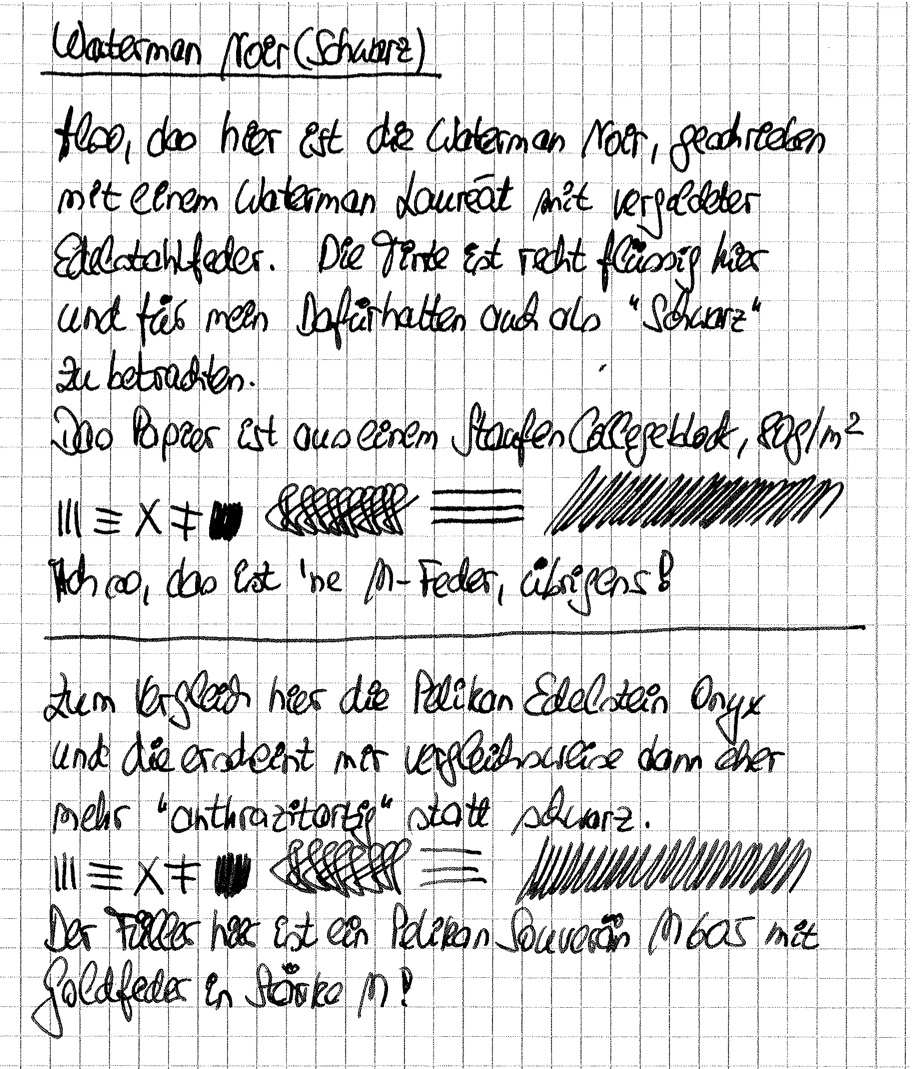 Waterman Noir (Schwarz)
Also, das hier ist die Waterman Noir, geschrieben
mit einem Waterman Lauréat mit vergoldeter
Edelstahlfeder. Die Tinte ist recht flüssig hier
und für mein Dafürhalten auch als "Schwarz"
zu betrachten.
Das Papier ist aus einem Staufen Collegeblock, 80g/m²
Ach so, das ist 'ne M-Feder, übrigens!
Zum Vergleich hier die Pelikan Edelstein Onyx
und die erscheint mir vergleichsweise dann eher
mehr "anthrazitartig" statt schwarz.
Der Füller hier ist ein Pelikan Souverän M605 mit
Goldfeder in Stärke M!